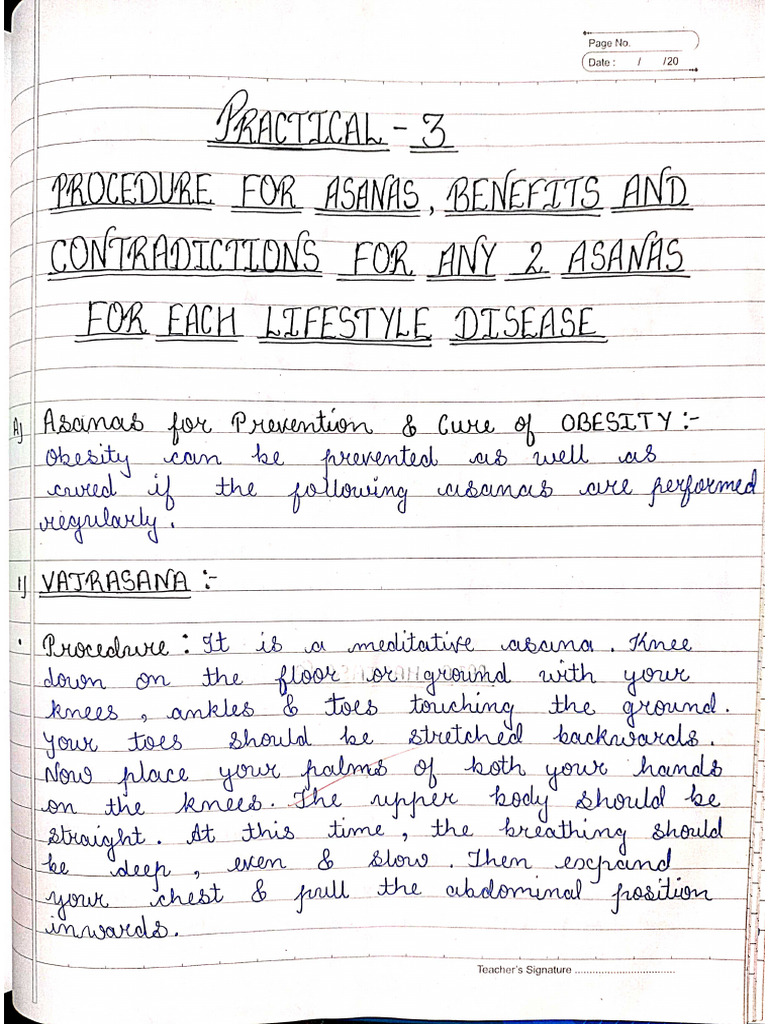 Page No.
Date : / /20
PRACTICAL - 3
PROCEDURE FOR ASANAS, BENEFITS AND
CONTRADICTIONS FOR ANY 2 ASANAS
FOR EACH LIFESTYLE DISEASE
A) Asanas for Prevention & Cure of OBESITY :-
Obesity can be prevented as well as
cured if the following asanas are performed
regularly.
1) VAJRASANA :-
• Procedure : It is a meditative asana. Knee
down on the floor or ground with your
knees, ankles & toes touching the ground.
Your toes should be stretched backwards.
Now place your palms of both your hands
on the knees. The upper body should be
straight. At this time, the breathing should
be deep, even & slow. Then expand
your chest & pull the abdominal position
inwards.
Teacher's Signature ..................................